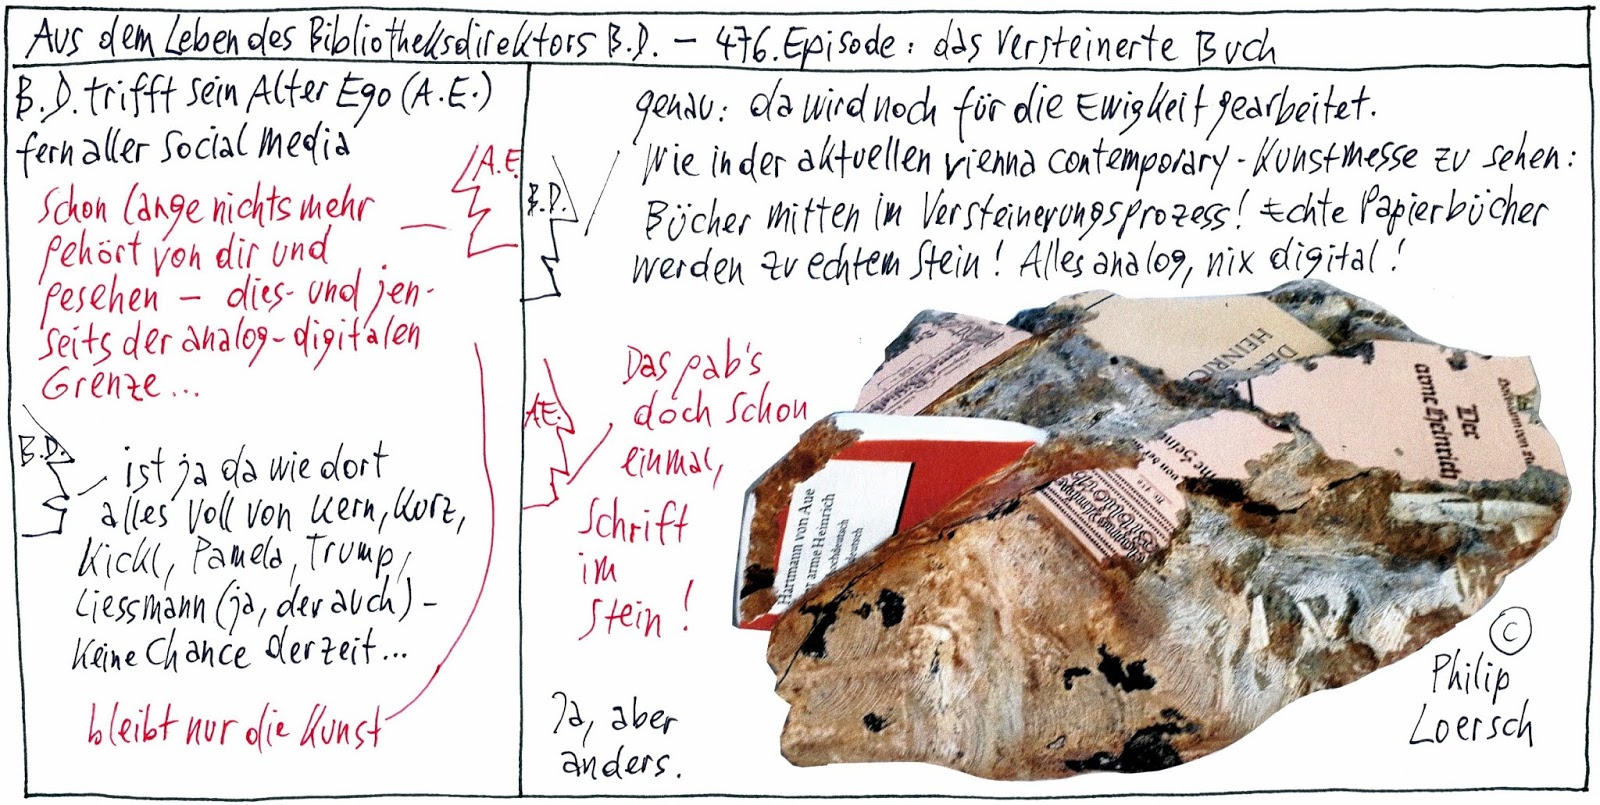 Aus dem Leben des Bibliotheksdirektors B.D. – 476. Episode: das versteinerte Buch
B.D. trifft sein Alter Ego (A.E.)
fern aller Social Media
A.E.
Schon lange nichts mehr
gehört von dir und
gesehen – dies- und jen-
seits der analog-digitalen
Grenze...
B.D.
ist ja da wie dort
alles voll von Kern, Kurz,
Kickl, Pamela, Trump,
Liessmann (ja, der auch) –
Keine Chance derzeit...
bleibt nur die Kunst
B.D.
genau: da wird noch für die Ewigkeit gearbeitet.
Wie in der aktuellen vienna contemporary-Kunstmesse zu sehen:
Bücher mitten im Versteinerungsprozess! Echte Papierbücher
werden zu echtem Stein! Alles analog, nix digital!
A.E.
Das gab's
doch schon
einmal,
Schrift
im
Stein!
Ja, aber
anders.
DER
HEINRICH
Der
arme Heinrich
Hartmann von Aue
arme Heinrich
© 
Philip
Loersch